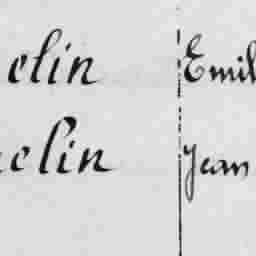 elin Emil
elin Jean